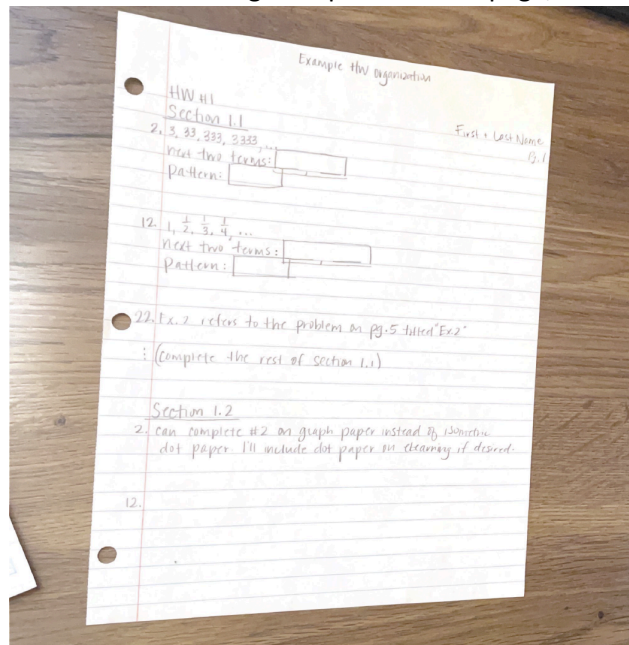 Example HW organization
HW #1
Section 1.1
First + Last Name
p.1
2. 3, 33, 333, 3333, ...
next two terms:
Pattern:
12. 1, 1/2, 1/3, 1/4, ...
next two terms:
Pattern:
22. Ex. 2 refers to the problem on pg. 5 titled "Ex 2"
⋮ (complete the rest of section 1.1)
Section 1.2
2. can complete #2 on graph paper instead of isometric
dot paper. I'll include dot paper on elearning if desired.
12.